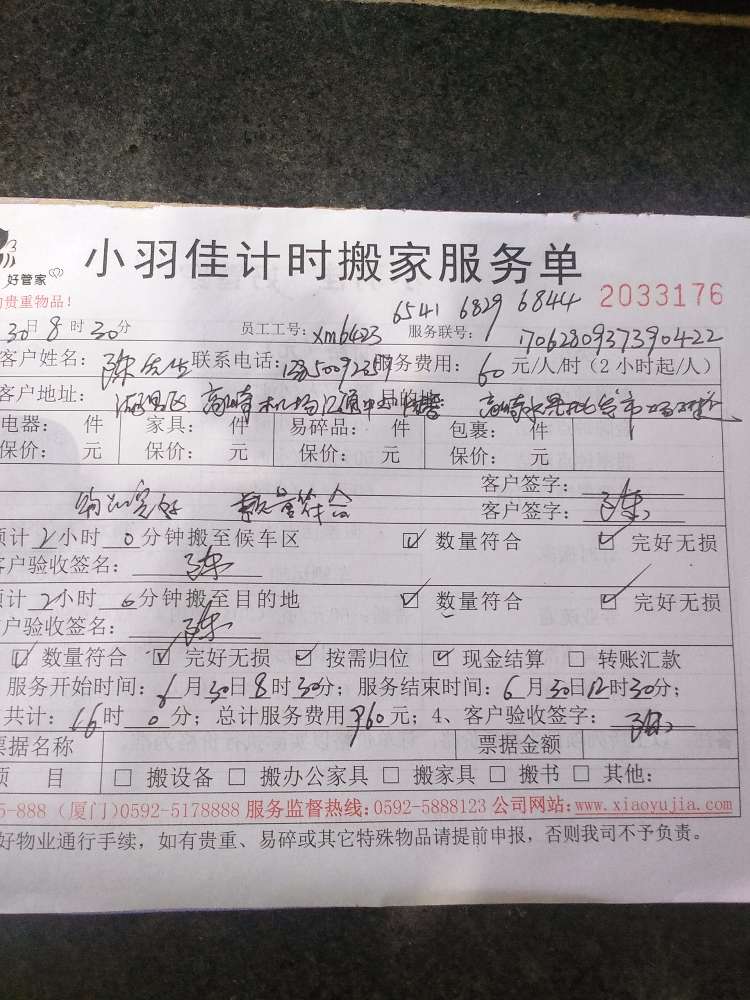 好管家
小羽佳计时搬家服务单
贵重物品！
6541 6829 6844 2033176
30日8时30分 员工工号：xm6423 服务联号：1706280937390422
客户姓名：陈先生 联系电话： 服务费用：60元/人/时（2小时起/人）
客户地址：湖里区 高崎机场 目的地： 高崎水果批发市场
电器： 件 家具： 件 易碎品： 件 包裹： 件
保价： 元 保价： 元 保价： 元 保价： 元
客户签字：
物品完好 数量符合 客户签字：陈
预计2小时0分钟搬至候车区 ☑ 数量符合 ☑ 完好无损
客户验收签名：陈
预计2小时0分钟搬至目的地 ☑ 数量符合 ☑ 完好无损
客户验收签名：陈
☑ 数量符合 ☑ 完好无损 ☑ 按需归位 ☑ 现金结算 □ 转账汇款
服务开始时间：6月30日8时30分；服务结束时间：6月30日12时30分；
共计：16时0分；总计服务费用960元；4、客户验收签字：陈
票据名称 票据金额
项 目 □ 搬设备 □ 搬办公家具 □ 搬家具 □ 搬书 □ 其他：
5-888（厦门）0592-5178888 服务监督热线：0592-5888123 公司网站：www.xiaoyujia.com
好物业通行手续，如有贵重、易碎或其它特殊物品请提前申报，否则我司不予负责。